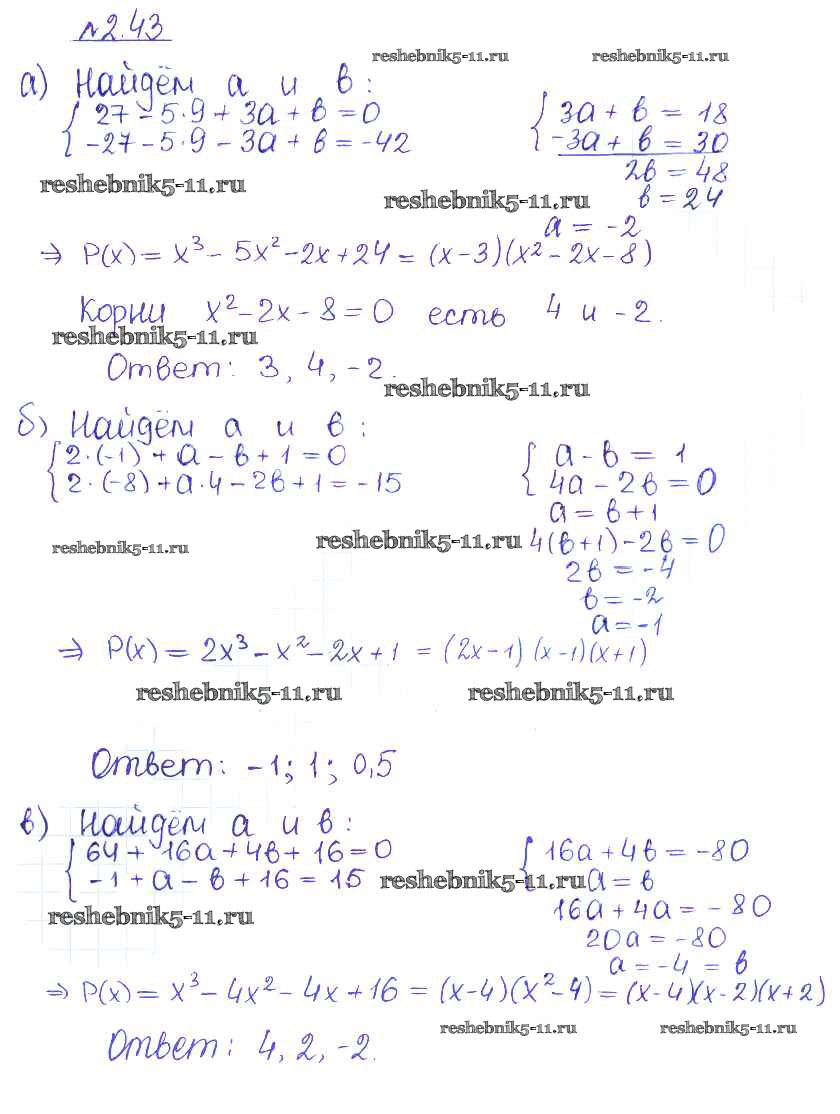 №2.43
reshebnik5-11.ru reshebnik5-11.ru
а) Найдём а и в:
27 - 5·9 + 3а + в = 0
-27 - 5·9 - 3а + в = -42
3а + в = 18
-3а + в = 30
2в = 48
в = 24
а = -2
reshebnik5-11.ru reshebnik5-11.ru
⇒ P(x) = x³ - 5x² - 2x + 24 = (x-3)(x² - 2x - 8)
Корни x² - 2x - 8 = 0 есть 4 и -2.
reshebnik5-11.ru
Ответ: 3, 4, -2.
reshebnik5-11.ru
б) Найдём а и в:
2·(-1) + а - в + 1 = 0
2·(-8) + а·4 - 2в + 1 = -15
а - в = 1
4а - 2в = 0
а = в + 1
4(в+1) - 2в = 0
2в = -4
в = -2
а = -1
reshebnik5-11.ru reshebnik5-11.ru
⇒ P(x) = 2x³ - x² - 2x + 1 = (2x-1)(x-1)(x+1)
reshebnik5-11.ru reshebnik5-11.ru
Ответ: -1; 1; 0,5
в) Найдём а и в:
64 + 16а + 4в + 16 = 0
-1 + а - в + 16 = 15
16а + 4в = -80
а = в
16а + 4а = -80
20а = -80
а = -4 = в
reshebnik5-11.ru
reshebnik5-11.ru
⇒ P(x) = x³ - 4x² - 4x + 16 = (x-4)(x²-4) = (x-4)(x-2)(x+2)
reshebnik5-11.ru reshebnik5-11.ru
Ответ: 4, 2, -2.